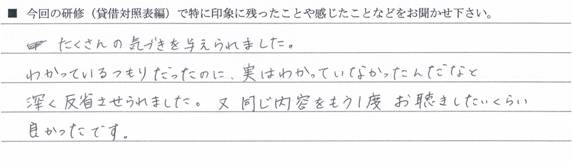 ■ 今回の研修（貸借対照表編）で特に印象に残ったことや感じたことなどをお聞かせ下さい。
たくさんの気づきを与えられました。
わかっているつもりだったのに、実はわかっていなかったんだなと
深く反省させられました。又同じ内容をもう1度お聴きしたいくらい
良かったです。